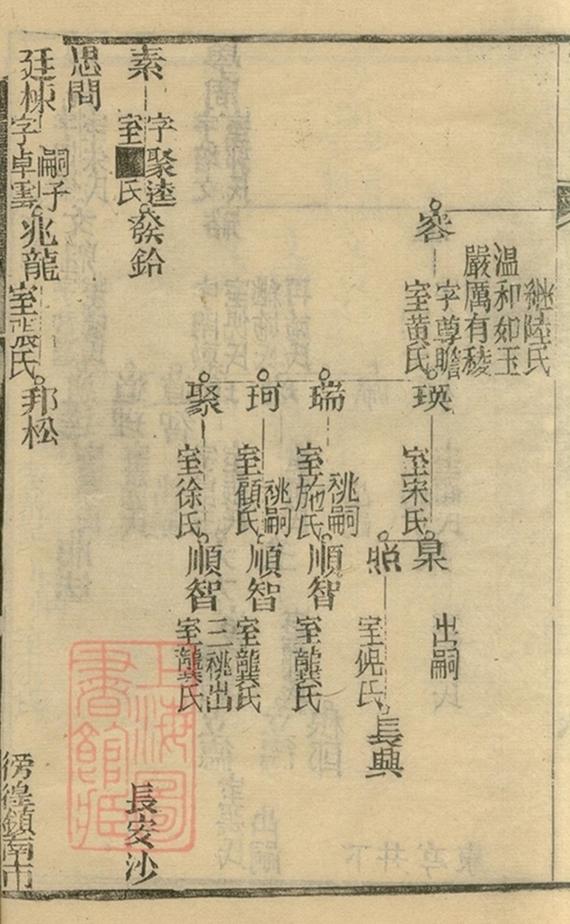 繼陸氏
溫和如玉
嚴厲有稜
容
字尊瞻
室黃氏
瑛
室宋氏
泉
出嗣
照
室倪氏
長興
瑞
祧嗣
室施氏
順智
室龔氏
珂
祧嗣
室顧氏
順智
室龔氏
聚
室徐氏
順智
三祧出
室龔氏
素
字聚逵
室 氏
發鈴
長安沙
思問
廷棟
嗣子
字卓雲
兆龍
室張氏
邦松
徬徨鎮南市
上海圖書館藏